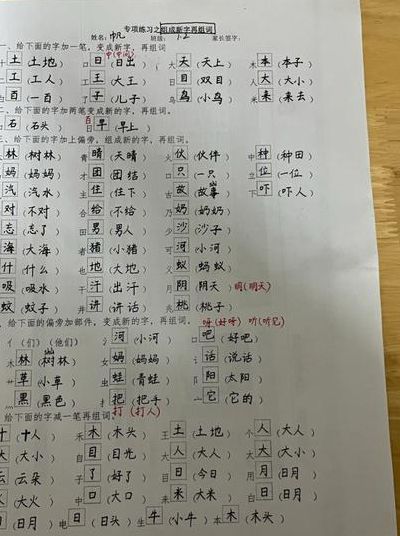 专项练习之组成新字再组词
姓名: 帆 班级: 1.2 家长签字:
一、给下面的字加一笔，变成新字，再组词
十 土 (土地) 口 日 (日出) 中(中间) 大 天 (天上) 木 本 (本子)
二 工 (工人) 工 王 (大王) 日 目 (双目) 人 大 (大小)
白 百 (一百) 了 子 (儿子) 鸟 (小鸟) 米 来 (来去)
、给下面的字加两笔变成新字，再组词。
石 (石头) 日 早 (早上) 百
三、给下面的字加上偏旁，组成新字，再组词。
林 (树林) 青 晴 (天晴) 火 伙 (伙伴) 中 种 (种田)
妈 (妈妈) 才 团 (团结) 八 只 (一只) 立 位 (一位)
汽 (汽水) 主 住 (住下) 古 故 (故事) 下 吓 (吓人)
对 (不对) 合 给 (不给) 乃 奶 (奶奶)
忘 (忘了) 田 男 (男人) 少 沙 (沙子)
海 (大海) 者 猪 (小猪) 可 河 (小河)
什 (什么) 也 地 (大地) 义 蚁 (蚂蚁)
吸 (吸水) 干 汗 (出汗) 月 阴 (阴天) 明(明天)
蚊 (蚊子) 井 讲 (讲话) 兆 桃 (桃子)
、给下面的偏旁加部件，变成新的字，再组词。 呀(好呀) 听(听见)
亻 (们) (他们) 氵 河 (小河) 口 吧 (好吧)
木 林 (树林) 女 妈 (妈妈) 讠 话 (说话)
艹 草 (小草) 虫 蛙 (青蛙) 阝 阳 (太阳)
灬 黑 (黑色) 扌 把 (把手) 宀 它 (它的)
给下面的字减一笔再组词。 打 (打人)
十 (十人) 禾 木 (木头) 王 土 (土地) 个 人 (大人)
大 (大小) 自 目 (目光) 大 人 (大人) 太 大 (大小)
云 (云朵) 子 了 (好了) 目 日 (今日) 用 月 (日月)
火 (大火) 中 口 (大口) 来 米 (大米) 白 日 (日月)
日 (日月) 电 日 (日头) 生 牛 (小牛) 本 木 (木头)